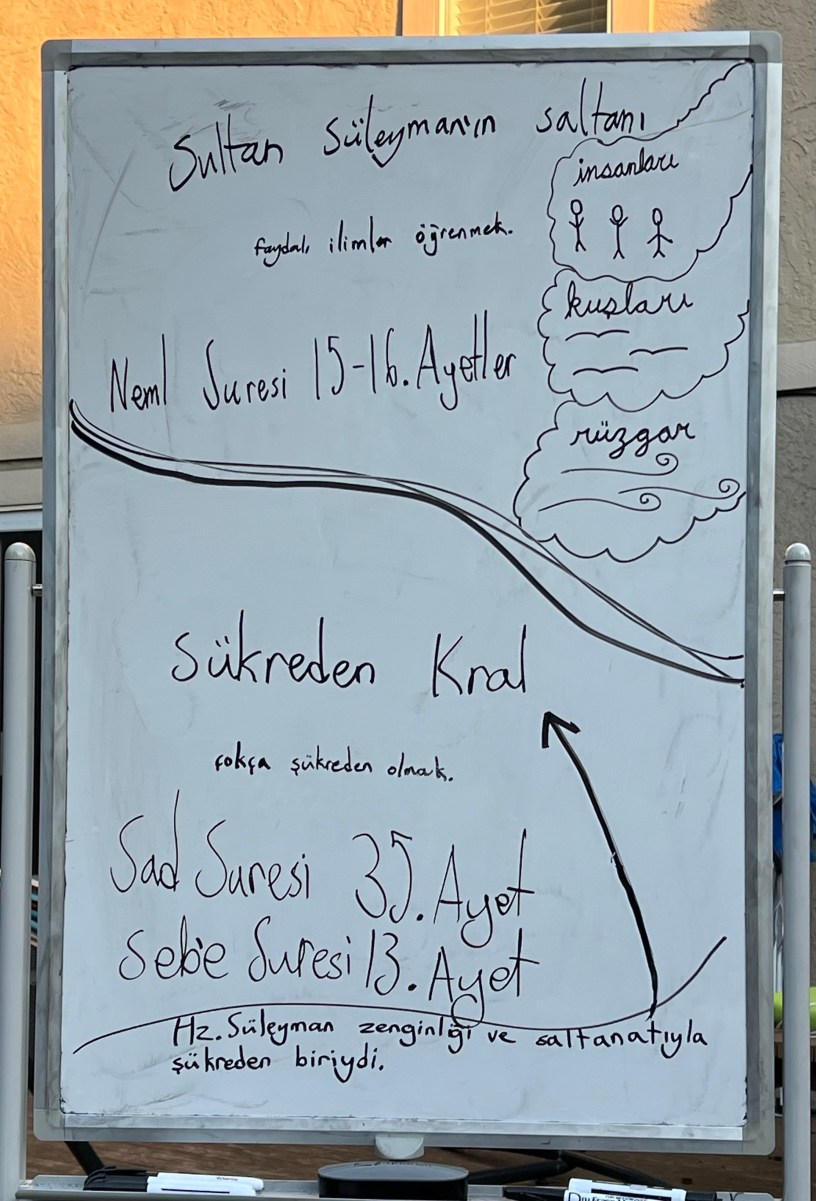 Sultan Süleyman'ın saltanı
insanları
faydalı ilimler öğrenmek.
kuşları
Neml Suresi 15-16. Ayetler
rüzgar
Şükreden Kral
çokça şükreden olmak.
Sad Suresi 35. Ayet
Sebe Suresi 13. Ayet
Hz. Süleyman zenginliği ve saltanatıyla
şükreden biriydi.